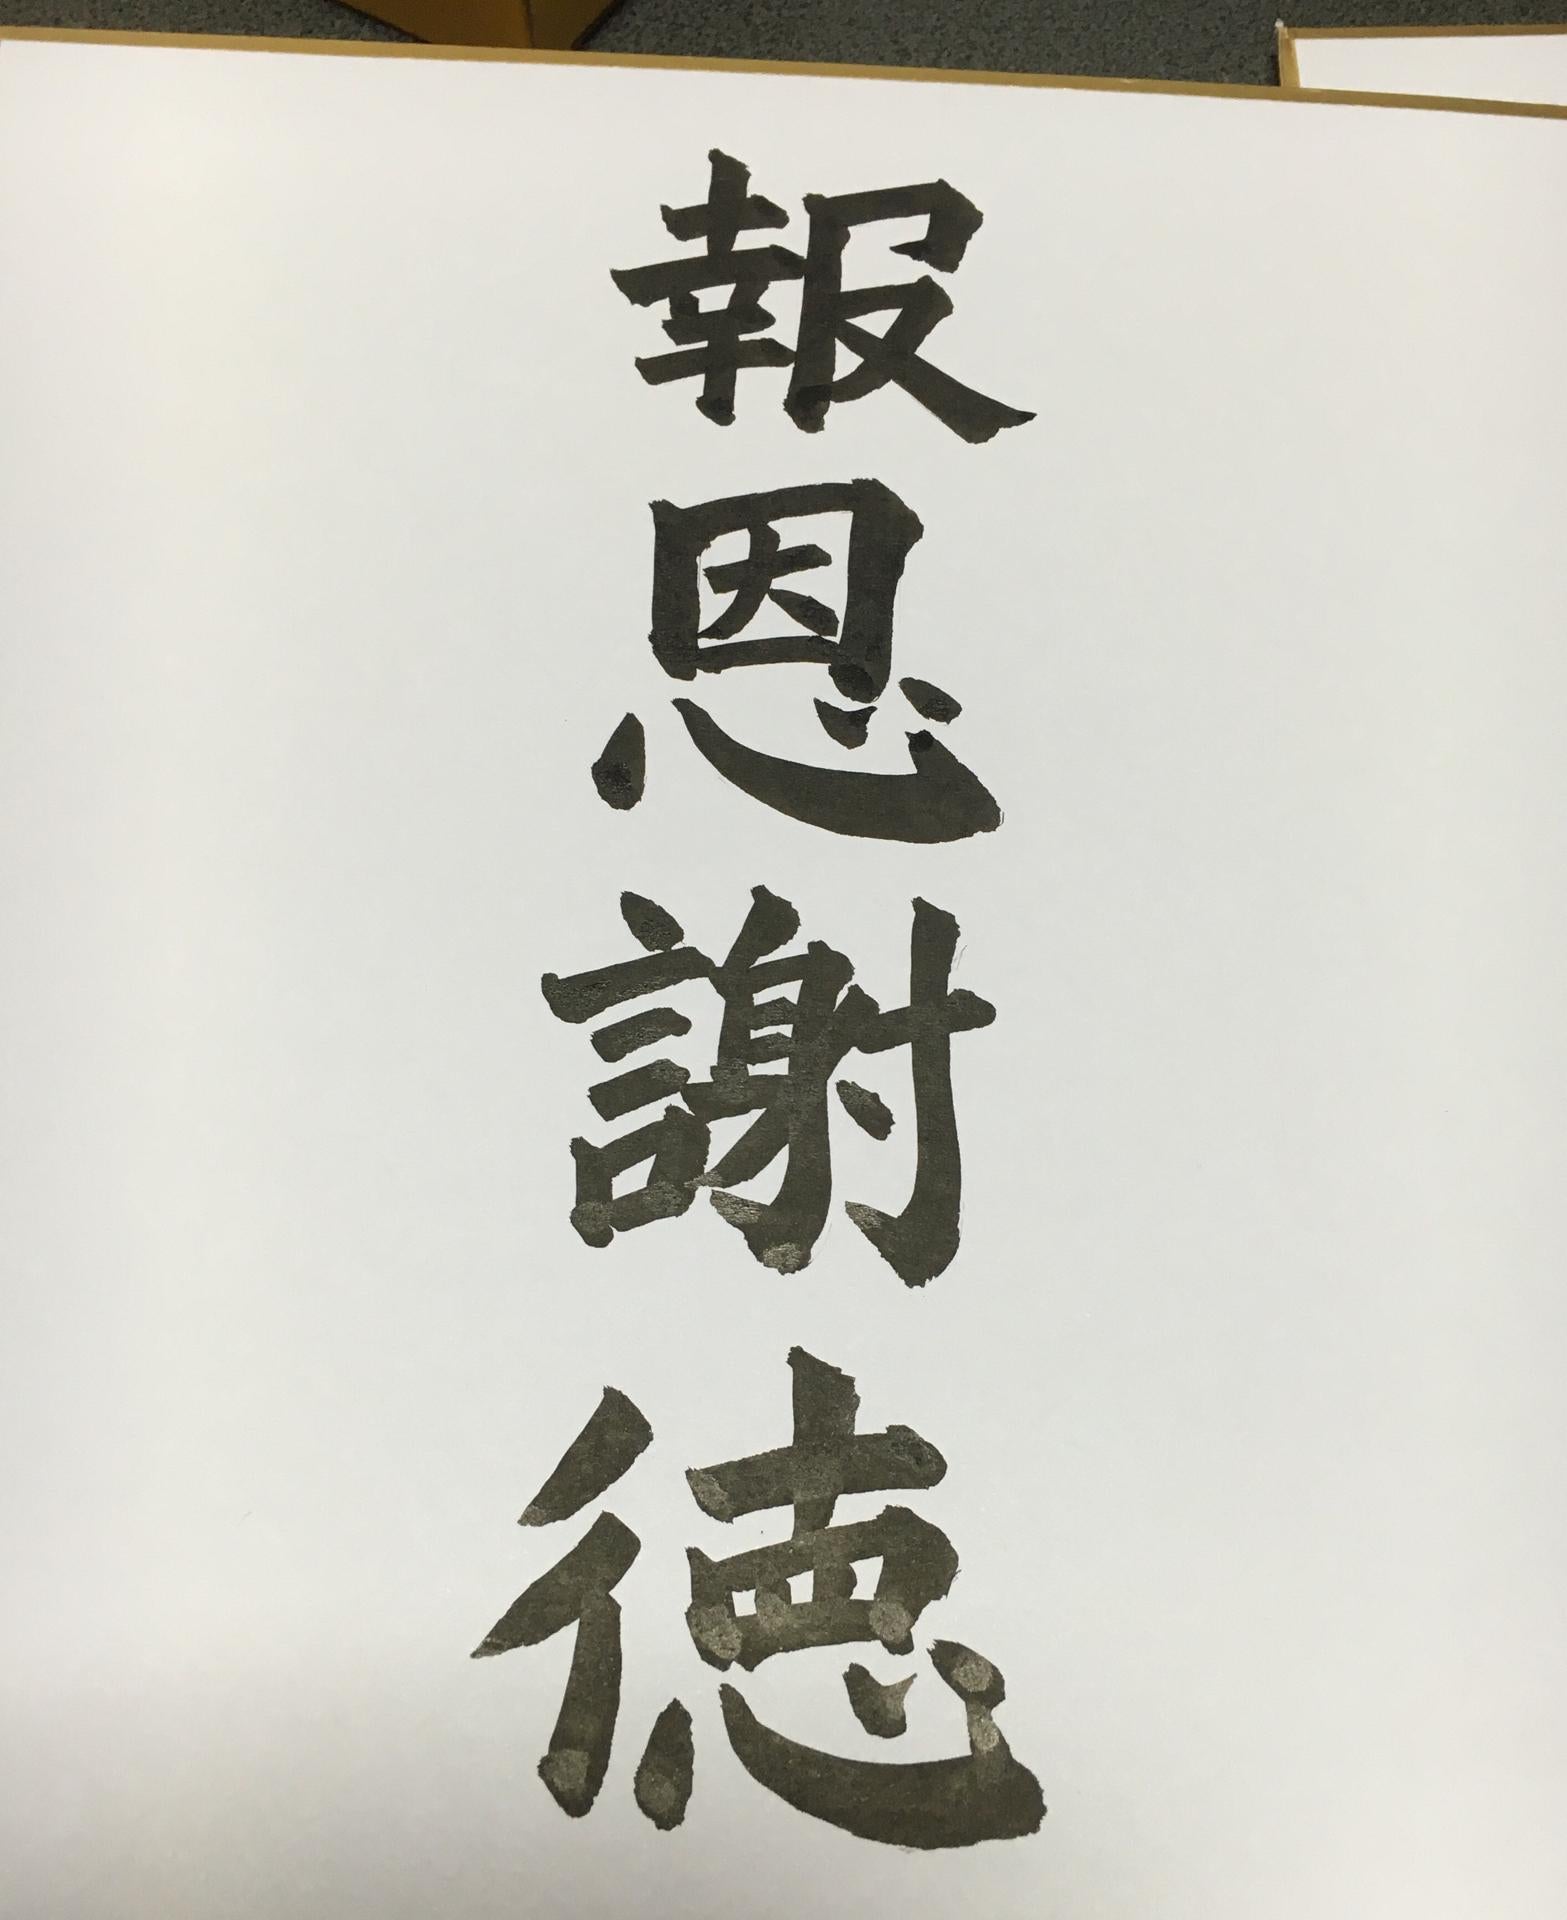 報恩謝徳